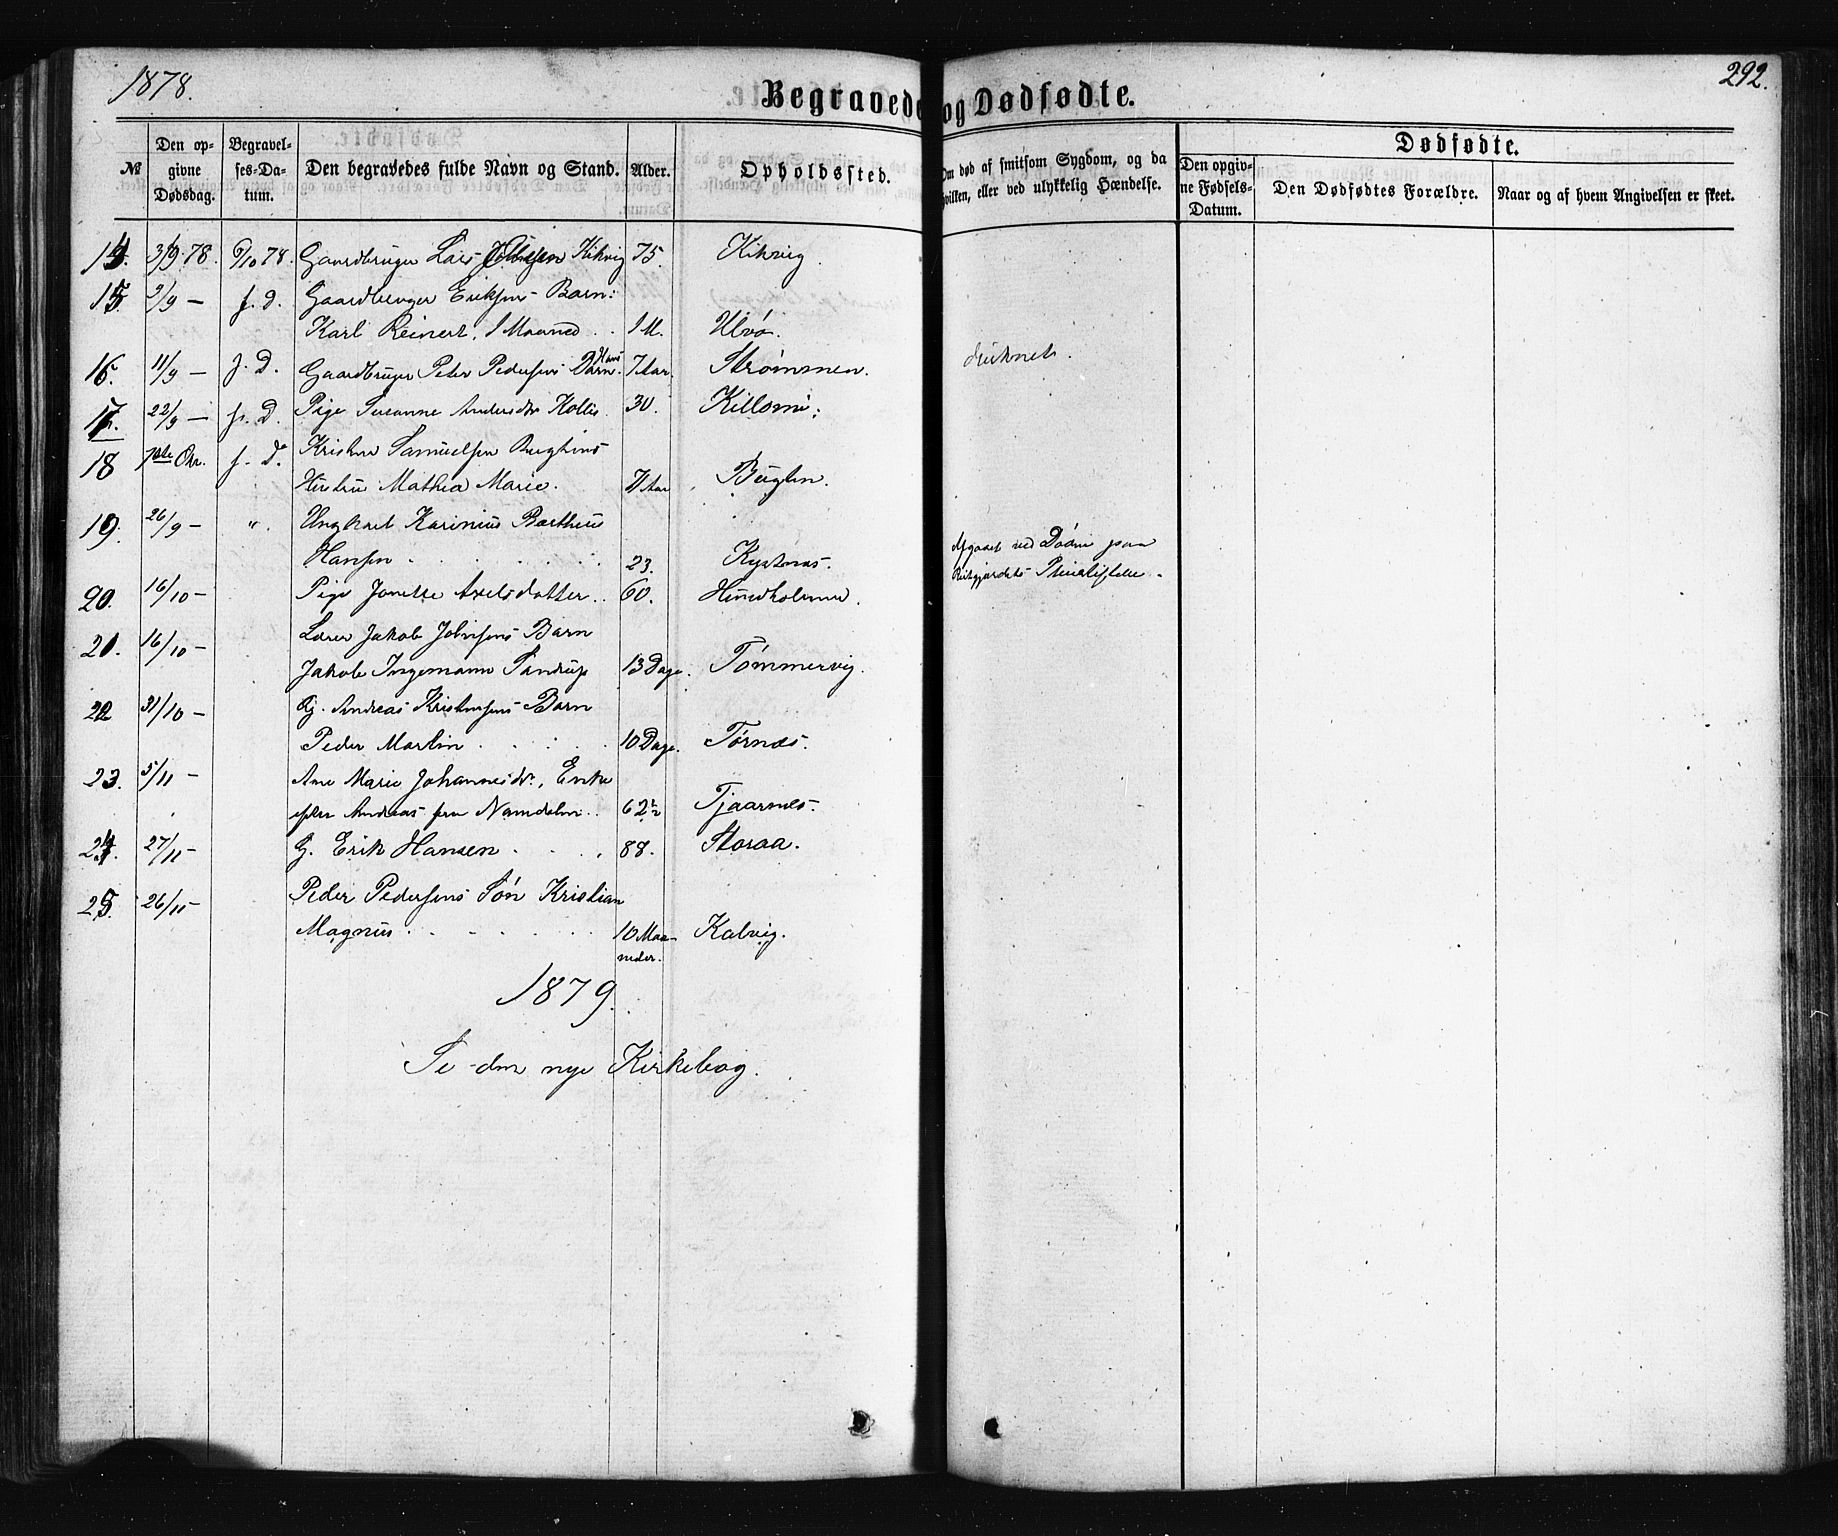 1878.
Begravede og Dødfødte.
292.
№
Den opgivne Dødsdag.
Begravelses-Datum.
Den begravedes fulde Navn og Stand.
Alder.
Opholdssted.
Om død af smitsom Sygdom, og da hvilken, eller ved ulykkelig Hændelse.
Dødfødte.
Den opgivne Fødsels-Datum.
Den Dødfødtes Forældre.
Naar og af hvem Angivelsen er skeet.
14. 3/9 78. 6/10 78. Gaardbruger Lars Kikvig 75. Kikvig.
15. 2/9 — f. d. Gaardbruger Eriksens Barn:
Karl Reinert, 1 Maaned . . 1 M. Ulvø.
16. 11/9 — f. D. Gaardbruger Peter Pedersens Barn Hans 7 Aar. Strømmen. druknet.
17. 22/9 — f. D. Pige Susanne Andersdr 30.
18 f. d. Samuelsen
Hustru Mathea Marie.
19. 26/9 — ". Ungkarl Karinius Bartheus
Hansen . . . . . 23. Kystnæs. Afgaaet ved Døden paa
20. 16/10 — Pige Axelsdatter . . 60. Hundholmen.
21. 16/10 — Lærer Jakob Johnsens Barn
Jakob Ingemann Sandrup 13 Dage. Tømmervig.
22 31/10 — Gj. Andreas Kristensens Barn
Peder Martin . . . . 10 Dage. Tørnes.
23. 5/11 — Ane Marie Johannesdr., Enke
efter Andreas fra Namdalen . . 62 Tjaarnes.
24. 27/11 — G. Erik Hansen . . . . 88. Storaa.
25. 26/11 — Peder Pedersens Søn Kristian
Magnus . . . . . . 10 Maa- Kalvig.
neder.
1879.
Se den nye Kirkebog.